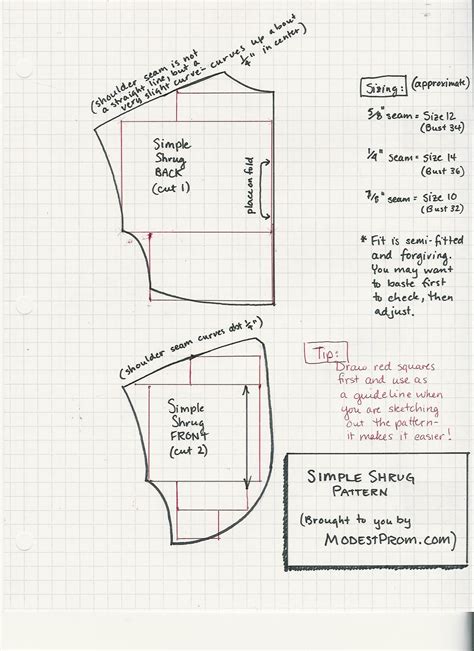 (shoulder seam is not
a straight line, but a
very slight curve - curves up about
1/4" in center)
Simple
Shrug
BACK
(cut 1)
place on fold
Sizing: (approximate)
5/8" seam = Size 12
(Bust 34)
1/4" seam = Size 14
(Bust 36)
7/8" seam = Size 10
(Bust 32)
* Fit is semi-fitted
and forgiving.
You may want
to baste first
to check, then
adjust.
(shoulder seam curves abt 1/4")
Simple
Shrug
FRONT
(cut 2)
Tip:
Draw red squares
first and use as
a guideline when
you are sketching
out the pattern-
it makes it easier!
SIMPLE SHRUG
PATTERN
(Brought to you by
MODESTPROM.COM)